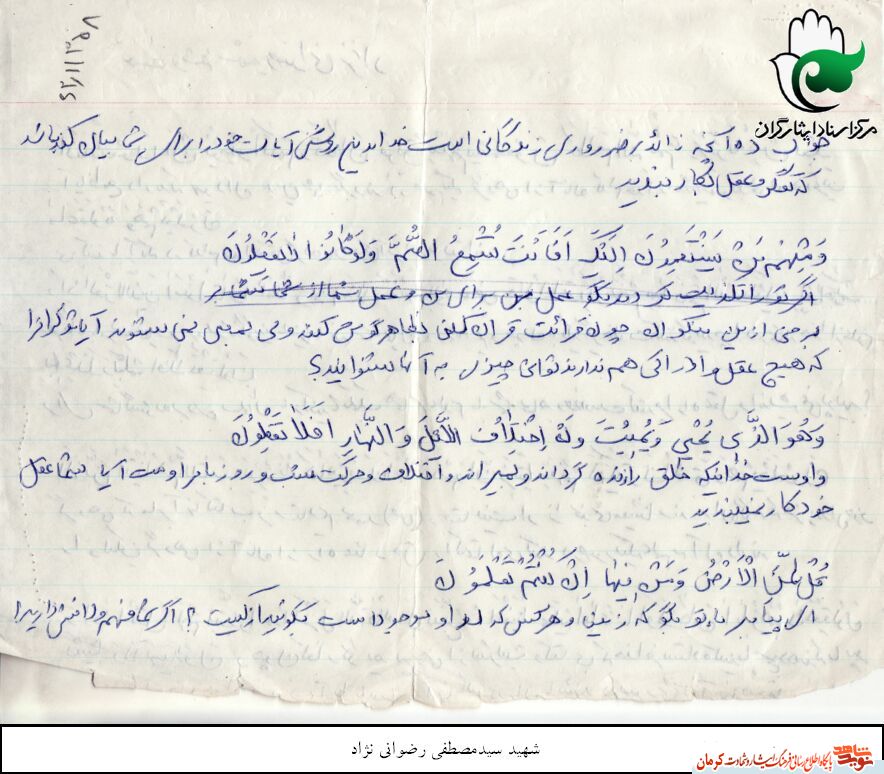 مرکز اسناد ایثارگران
جواب ده آنچه زائد بر ضروری زندگانی است خداوند بدین روشنی آیات خود را برای شما بیان کند باشد
که تفکر و عقل بکار بندید
وَمِنْهُم مَنْ یَسْتَمِعُونَ اِلَیْکَ اَفَاَنْتَ تُسْمِعُ الصُّمَّ وَلَوْ کانُوا لایَعْقِلُونَ
اگر تو را تکذیب کردند بگو عمل من برای من و عمل شما از شما
برخی از این منکران چون قرائت قرآن کنی بظاهر گوش کنند ولی بمعنی نمی شنوند آیا تو کرانرا
که هیچ عقل و ادراکی هم ندارند توانی چیزی به آنها بشنوانید؟
وَهُوَ الَّذی یُحْیی وَیُمیتُ وَلَهُ اِخْتِلافُ اللَّیْلِ وَ النَّهارِ اَفَلا تَعْقِلُونَ
و اوست خدائیکه خلق را زنده گرداند و بمیراند و اختلاف و حرکت شب و روز بامر اوست آیا شما عقل
خود کار نمیبندید
قُلْ لِمَنِ الْاَرْضُ وَمَنْ فیها اِنْ کُنْتُمْ تَعْلَمُونَ
ای پیامبر ما، تو بگو که زمین و هر کس که در او موجود است بگوئید از کیست؟ اگر شما فهم و دانش دارید
شهید سیدمصطفی رضوانی نژاد
نوید شاهد
پایگاه اطلاع رسانی فرهنگ ایثار و شهادت کرمان